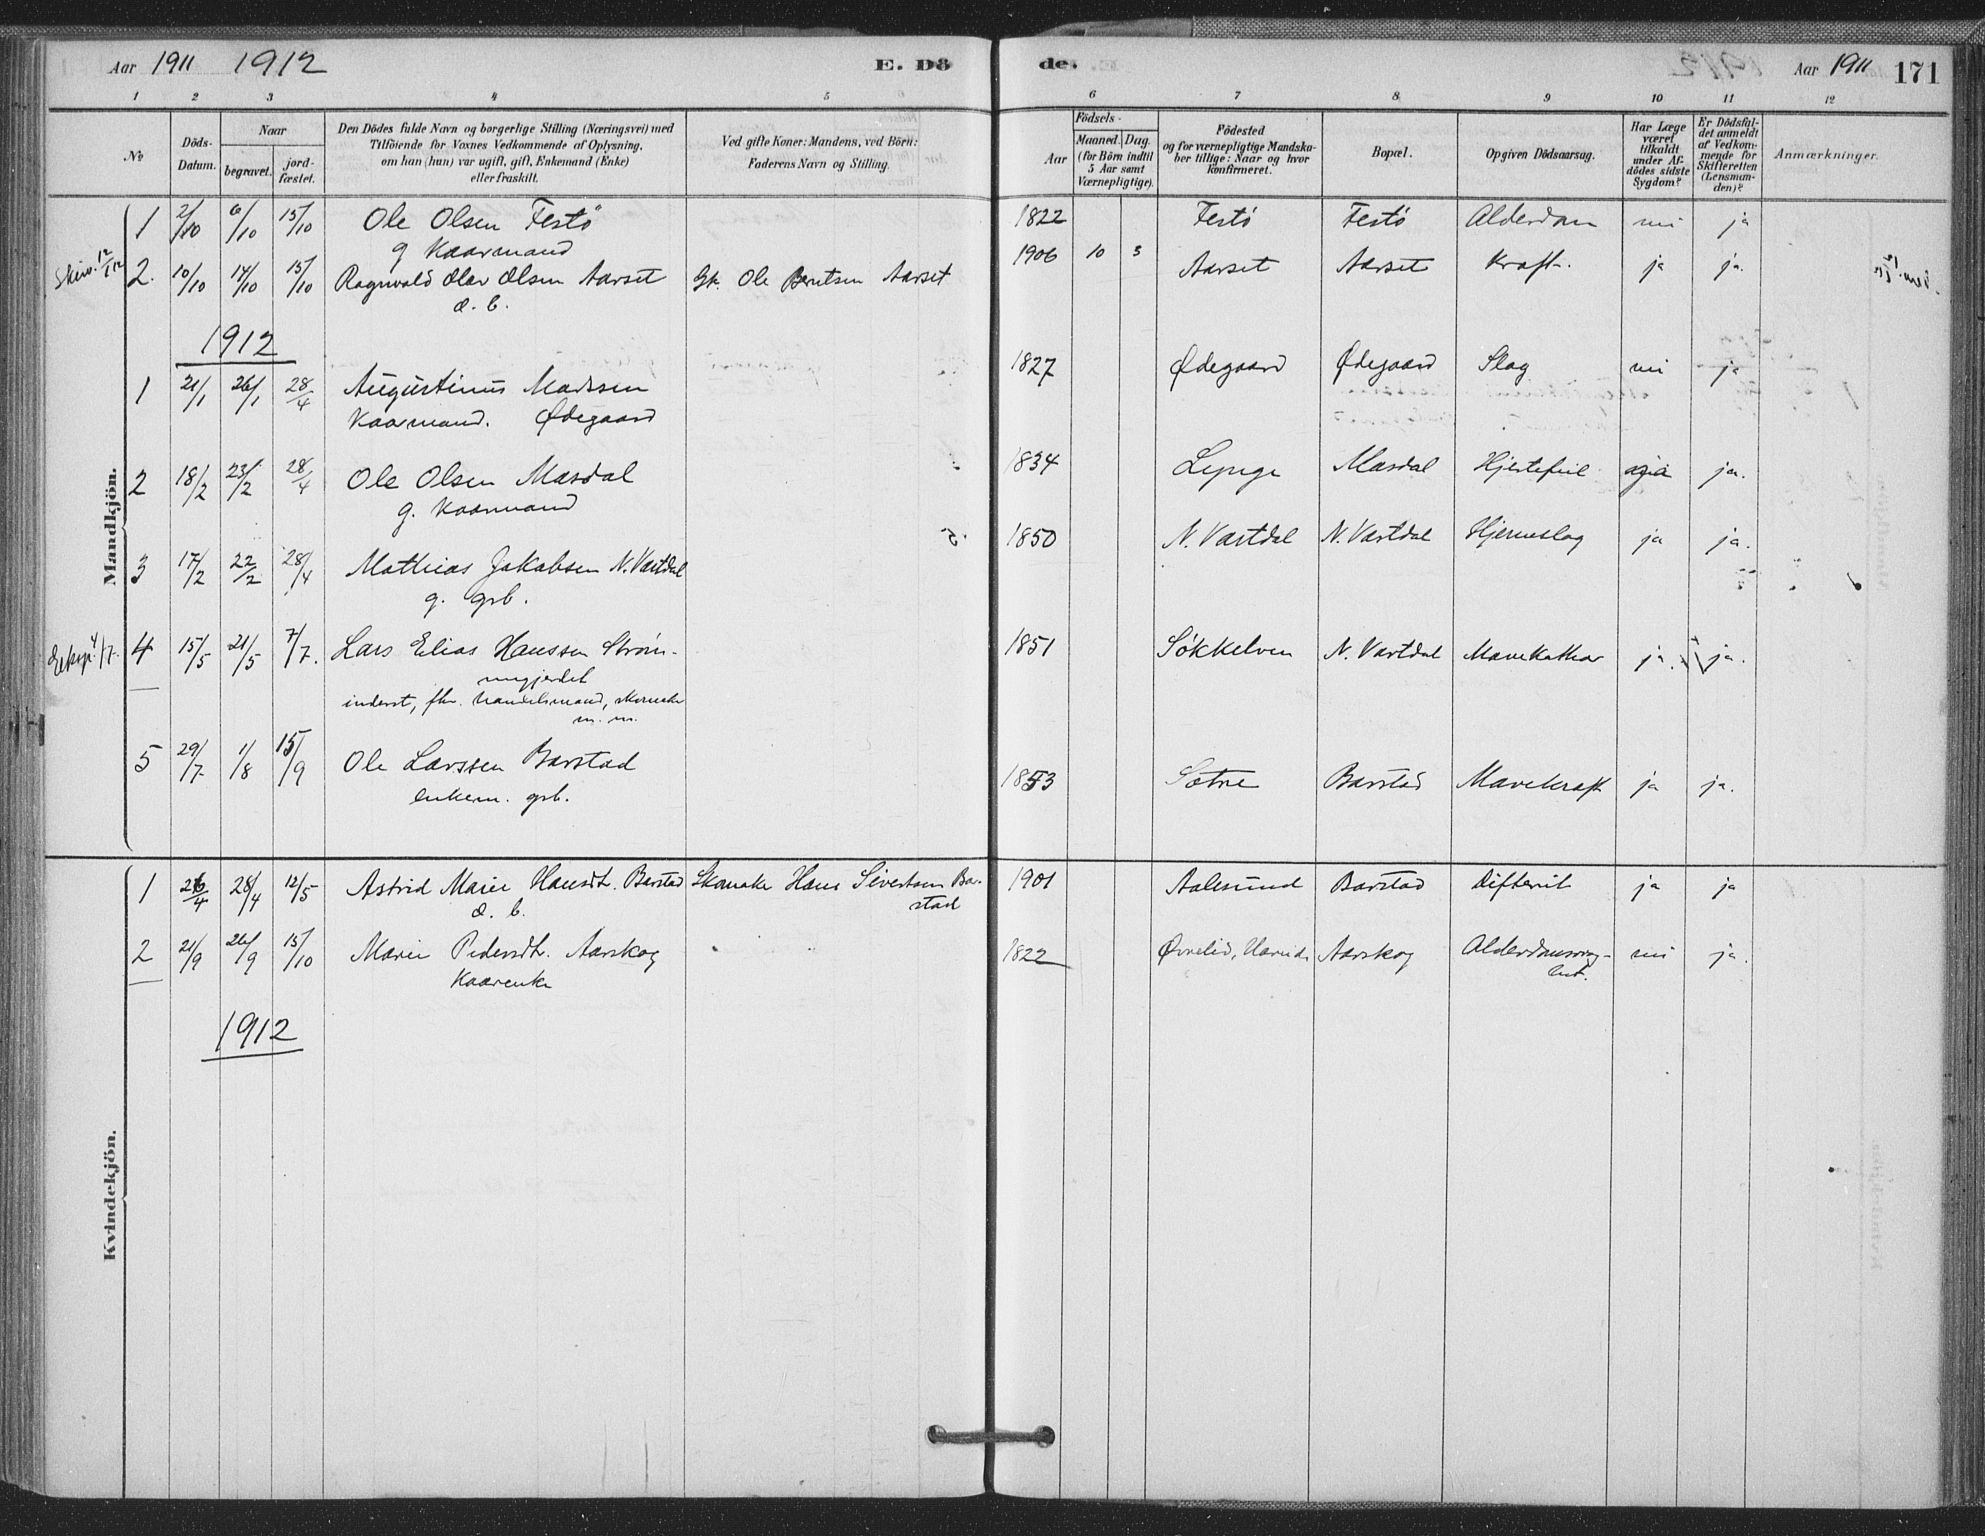 Aar 1911 1912 E. Dö
de. Aar 1911 171
1 2 3 4 5 6 7 8 9 10 11 12
No
Döds-
Datum.
Naar
begravet.
jord-
fæstet.
Den Dödes fulde Navn og borgerlige Stilling (Næringsvei) med
Tilföiende for Voxnes Vedkommende af Oplysning,
om han (hun) var ugift, gift, Enkemand (Enke)
eller fraskilt.
Ved gifte Koner: Mandens, ved Börn:
Faderens Navn og Stilling.
Födsels-
Aar
Maaned. Dag.
(for Börn indtil
5 Aar samt
Værnepligtige).
Födested
og for værnepligtige Mandska-
ber tillige: Naar og hvor
konfirmeret.
Bopæl.
Opgiven Dödsaarsag.
Har Læge
været
tilkaldt
under Af-
dödes sidste
Sygdom?
Er Dödsfal-
det anmeldt
af Vedkom-
mende for
Skifteretten
(Lensman-
den)?
Anmærkninger.
Mandkjön.
1 2/10 6/10 15/10 Ole Olsen Festö 1822 Festö Festö Alderdom nei ja
g Kaarmand
2. 10/10 14/10 15/10 Ragnvald Olav Olsen Aarset Gr. Ole Berntsen Aarset 1906 10 3 Aarset Aarset Kræft. ja ja.
d. b.
1912
1 21/1 26/1 28/4 Augustinus Madssen 1827 Ødegaard Ødegaard Slag nei ja
Kaarmand. Ødegaard
2 18/2 23/2 28/4 Ole Olsen Masdal 1834 Lynge Masdal Hjertefeil ja ja.
g. Kaarmand
3 17/2 22/2 28/4 Mathias Jakobsen N. Vartdal 1850 N. Vartdal N. Vartdal Hjerneslag ja ja.
g. grb.
4 15/5 21/5 7/7. Lars Elias Hanssen Strøm- 1851 Søkkelven N. Vartdal Mavekathar ja. ja.
megjerdet
inderst, fhv. handelsmand, skomaker
m. m.
5 29/7 1/8 15/9 Ole Larssen Barstad 1853 Sætre Barstad Mavekræft ja ja.
enkem. grb.
Kvindekjön.
1 26/4 28/4 12/5 Astrid Marie Hansdt. Barstad Skomaker Hans Sivertsen Bar- 1901 Aalesund Barstad Difterit ja ja
d. b. stad
2 21/9 26/9 15/10 Marie Pedersdt. Aarskog 1822 Øvrelid, Hareid. Aarskog Alderdomssvag- nei ja.
Kaarenke het.
1912